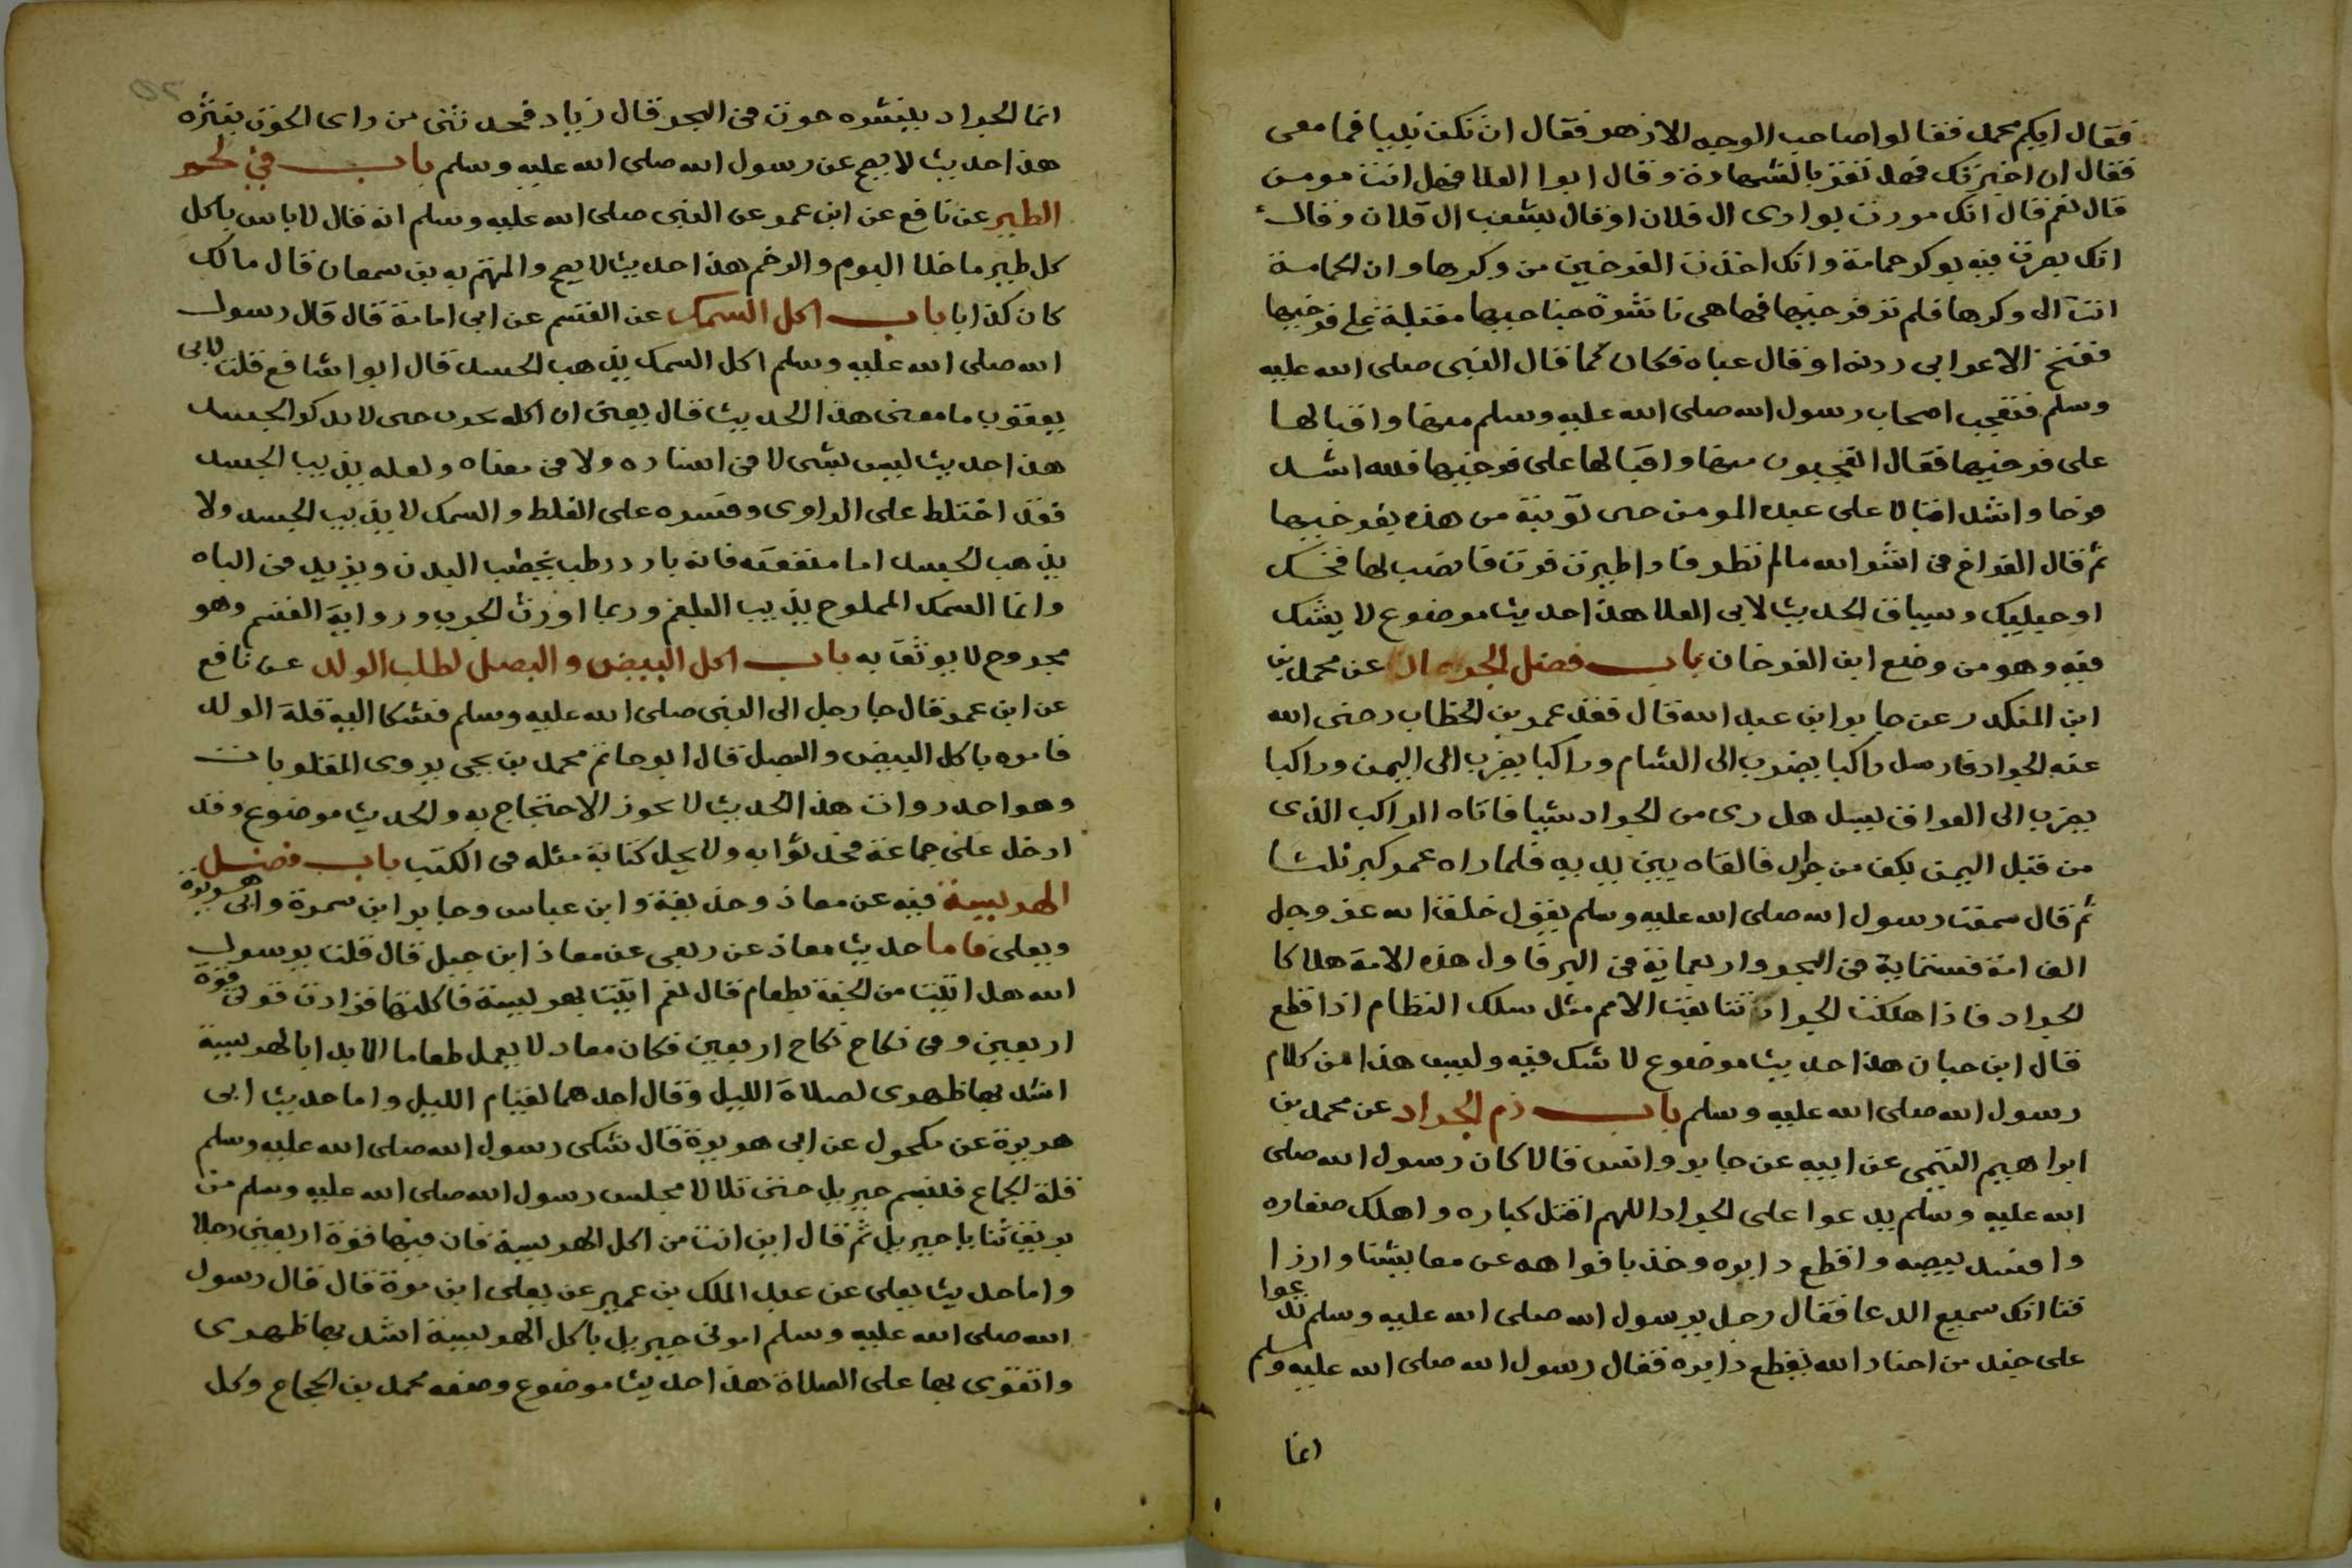 فقال ايكم محمد فقالوا صاحب الوجه الازهر فقال ان تكن نبيا فما معى
فقال ان اخبرتك فهل تقر بالشهادة وقال ابوا العلا فهل انت مومن
قال نعم قال انك مررت بوادى ال فلان او قال بشعب ال فلان وقال
انك بصرت فيه بوكر حمامة وانك اخذت الفرخين من وكرها وان الحمامة
اتت الى وكرها فلم تر فرخيها فهاهى ناشرة جناحيها مقبلة على فرخيها
ففتح الاعرابى ردنه او قال عباه فكان كما قال النبى صلى الله عليه
وسلم فتعجب اصحاب رسول الله صلى الله عليه وسلم منها واقبالها
على فرخيها فقال اتعجبون منها واقبالها على فرخيها فلله اشد
فرحا واشد اقبالا على عبده المومن حين توبته من هذه بفرخيها
ثم قال الفراخ فى اسر الله مالم تطرفا واطيرت فرت فانصب لها فخك
او حيليك وسياق الحديث لابى العلا هذا حديث موضوع لا يشك
فيه وهو من وضع ابن الفرخان باب فضل الجراد عن محمد بن
ابن المنكدر عن جابر ابن عبد الله قال فقد عمر بن الخطاب رضى الله
عنه الجراد فارسل راكبا يضرب الى الشام وراكبا يضرب الى اليمن وراكبا
يضرب الى العراق يسل هل رى من الجراد شيا فاتاه الراكب الذى
من قبل اليمن بكف من جراد فالقاه بين يديه فلما راه عمر كبر ثلثا
ثم قال سمعت رسول الله صلى الله عليه وسلم يقول خلق الله عز وجل
الف امة فستماية فى البحر واربعماية فى البر فاول هذه الامة هلاكا
الجراد فاذا هلكت الجراد تتابعت الامم مثل سلك النظام اذا قطع
قال ابن حبان هذا حديث موضوع لا شك فيه وليس هذا من كلام
رسول الله صلى الله عليه وسلم باب ذم الجراد عن محمد بن
ابراهيم التيمى عن ابيه عن جابر وانس قالا كان رسول الله صلى
الله عليه وسلم يدعوا على الجراد اللهم اقتل كباره واهلك صغاره
وافسد بيضه واقطع دابره وخذ بافواهه عن معايشنا وارزا
قنا انك سميع الدعا فقال رجل يرسول الله صلى الله عليه وسلم تدعوا
على جند من اجناد الله بقطع دابره فقال رسول الله صلى الله عليه وسلم
انما
انما الجراد ينشره حوت فى البحر قال زياد فحدثنى من راى الحوت ينثره
هذا حديث لا يصح عن رسول الله صلى الله عليه وسلم باب فى لحم
الطير عن نافع عن ابن عمر عن النبى صلى الله عليه وسلم انه قال لا باس باكل
كل طير ما خلا البوم والرخم هذا حديث لا يصح والمتهم به بن سمعان قال مالك
كان كذابا باب اكل السمك عن القسم عن ابى امامة قال قال رسول
الله صلى الله عليه وسلم اكل السمك يذهب الجسد قال ابوا شافع قلت لابى
يعقوب ما معنى هذا الحديث قال يعنى ان اكله حتى لا يذكر الجسد
هذا حديث ليس بشى لا فى اسناده ولا فى معناه ولعله يذيب الجسد
فقد اختلط على الراوى وفسره على الغلط والسمك لا يذيب الجسد ولا
يذهب الجسد اما منفعته فانه بارد رطب يخطب البدن ويزيد فى الباه
وانما السمك المملوح يذيب البلغم وربما اورث الجرب ورواية القسم وهو
مجروح لا يوثق به باب اكل البيض والبصل لطلب الولد عن نافع
عن ابن عمر قال جا رجل الى النبى صلى الله عليه وسلم فشكا اليه قلة الولد
فامره باكل البيض والبصل قال ابو حاتم محمد بن يحيى يروى المقلوبات
وهو احد روات هذا الحديث لا يجوز الاحتجاج به والحديث موضوع وقد
ادخل على جماعة فحدثوا به ولا يحل كتابة مثله فى الكتب باب فضل
الهريسة فيه عن معاذ وحذيفة وابن عباس وجابر ابن سمرة وابى هريرة
ويعلى فاما حديث معاذ عن ربعى عن معاذ ابن جبل قال قلت يرسول
الله هل اتيت من الجنة بطعام قال نعم اتيت بهريسة فاكلتها فزادت قوتى قوة
اربعين وفى نكاح نكاح اربعين فكان معاد لا يعمل طعاما الا بدا بالهريسة
اشد بها ظهرى لصلاة الليل وقال احدهما لقيام الليل واما حديث ابى
هريرة عن مكحول عن ابى هريرة قال شكى رسول الله صلى الله عليه وسلم
قلة الجماع فتبسم جبريل حتى تلالا مجلس رسول الله صلى الله عليه وسلم من
بريق ثنايا جبريل ثم قال اين انت من اكل الهريسة فان فيها قوة اربعين رجلا
واما حديث يعلى عن عبد الملك بن عمير عن يعلى ابن مرة قال قال رسول
الله صلى الله عليه وسلم امرنى جبريل باكل الهريسة اشد بها ظهرى
واتقوى بها على الصلاة هذا حديث موضوع وضعه محمد بن الحجاج وكل